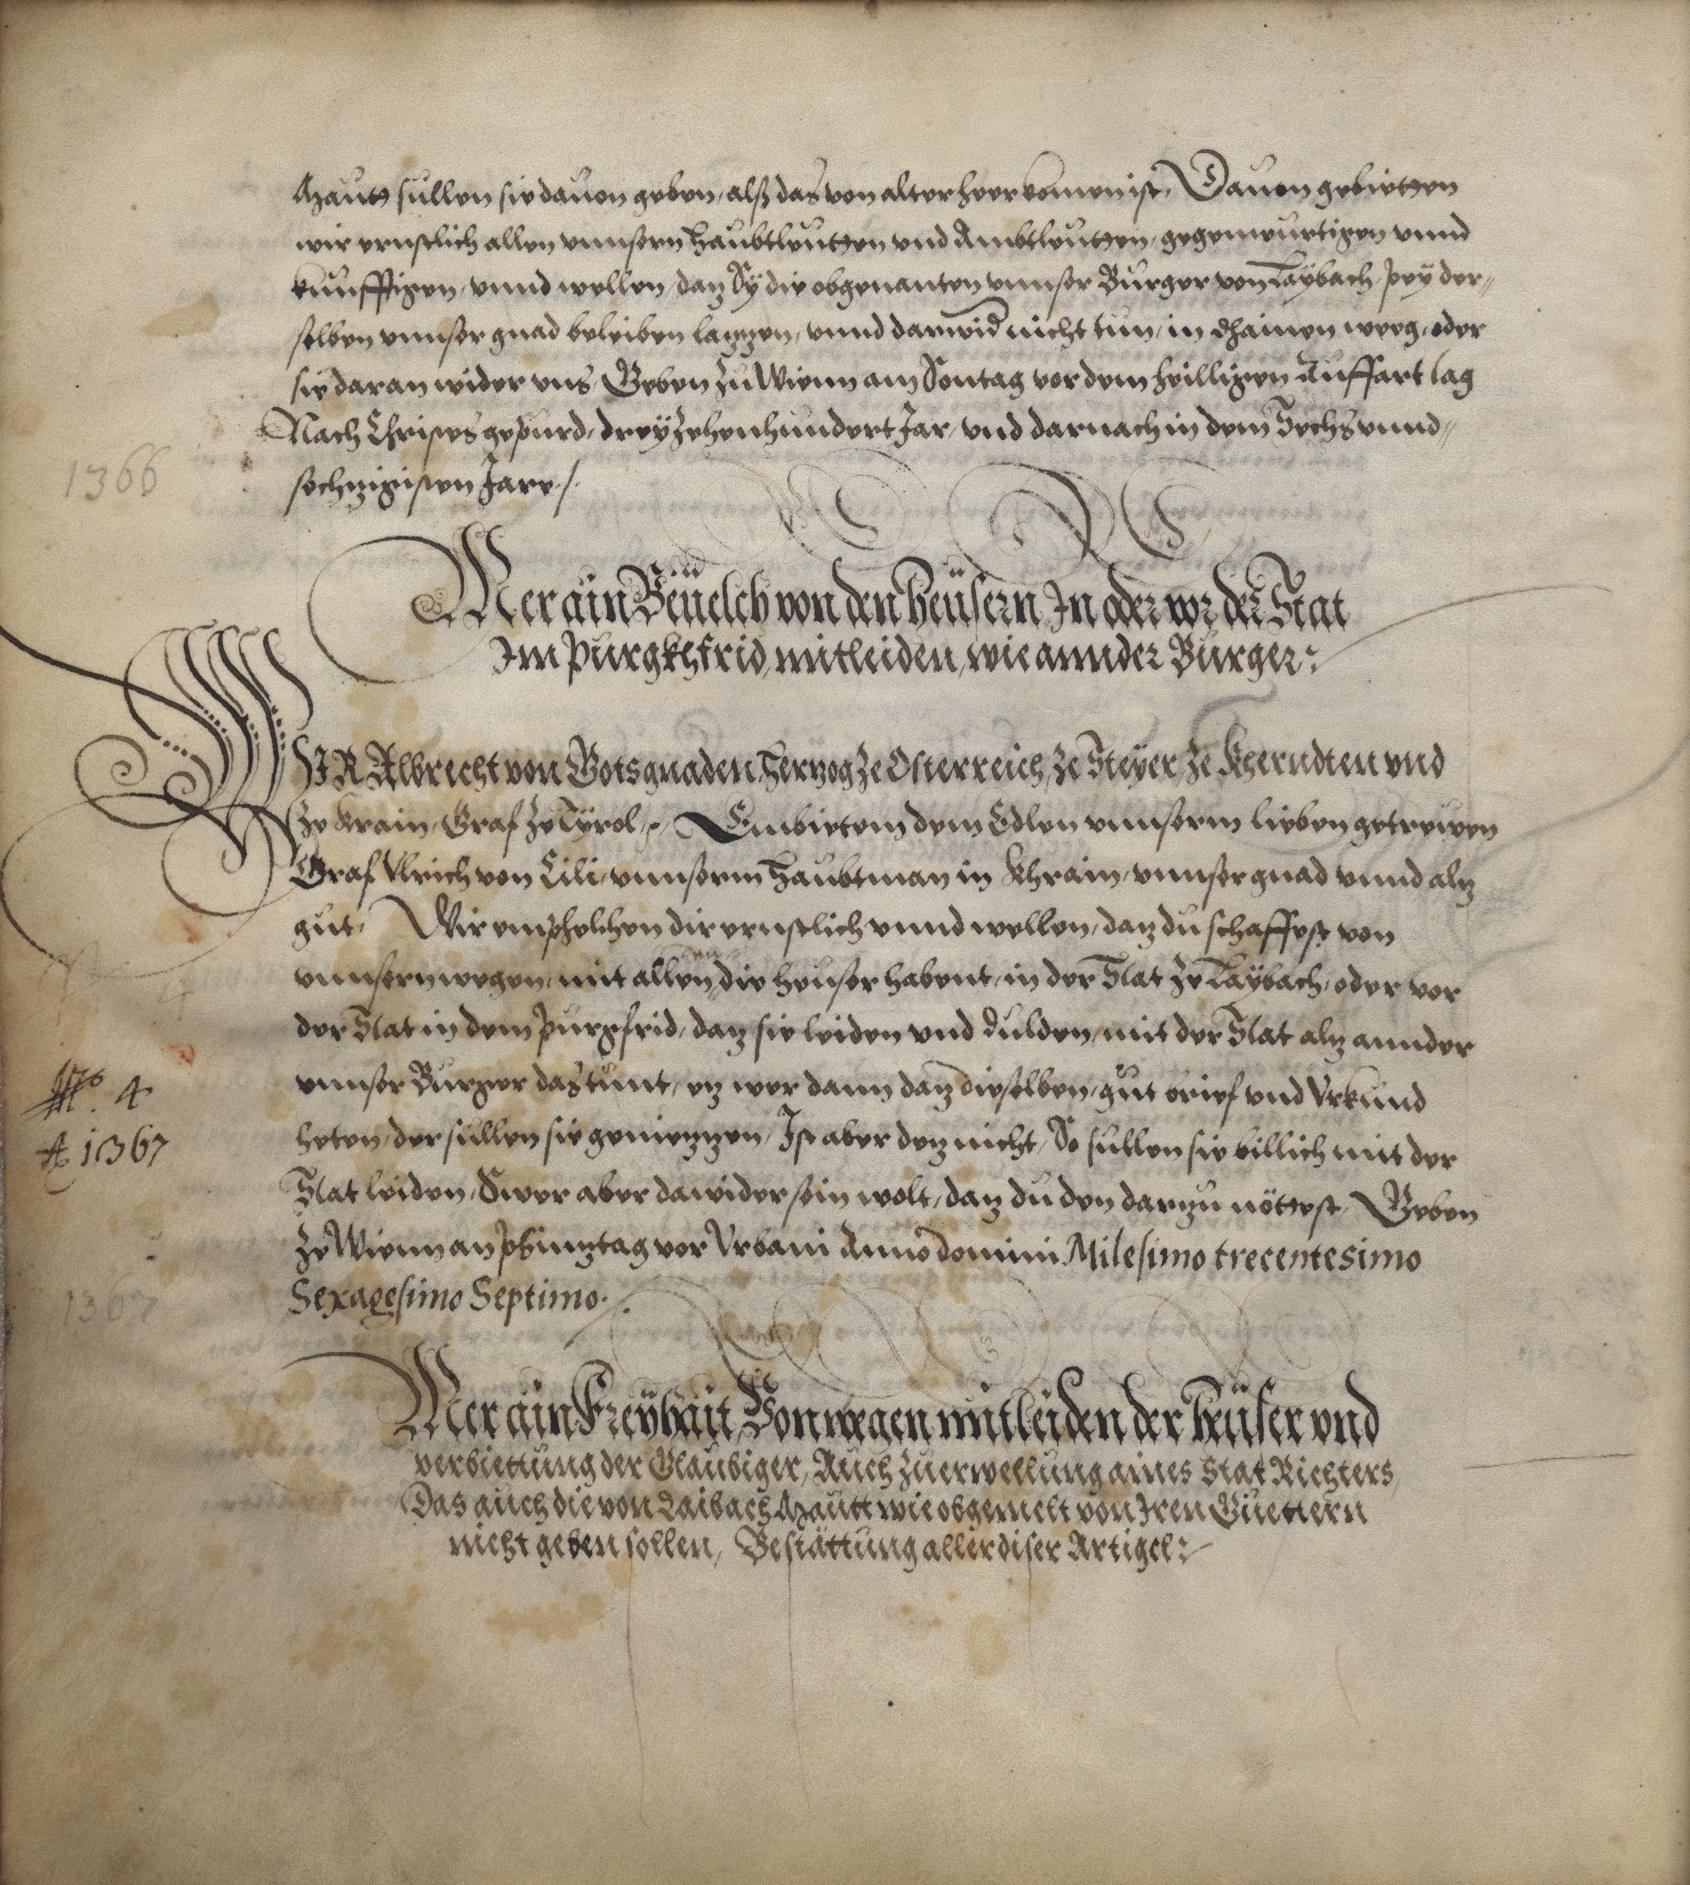 Mautt sullen sie dauon geben, alß das von alter heer komen ist, Dauon gebietten
wir ernstlich allen vnnsern Haubtleutten vnd Ambtleutten, gegenwurtigen vnnd
kunfftigen, vnnd wellen, daz Sy die obgenanten vnnser Burger von Laÿbach, pey der"
selben vnnser gnad beleiben lazzen, vnnd darwid nicht tun, in dhainen weeg, oder
sie daran wider vns, Geben Zu Wienn am Sontag vor dem heilligen Auffart tag
Nach Christes gepurd, dreyzehenhundert Jar, vnd darnach in dem Sechs vnnd"
sechzigisten Jare ./.
1366
Mer ain Beuelch von den heüsern, In oder vor der Stat
Im Purgkhfrid, mitleiden, wie annder Burger:
WIR Albrecht von Gots gnaden, Hertzog Ze Osterreich, Ze Steÿer, Ze Kherndten vnd
Ze Krain, Graf Ze Tÿrol, Embieten dem Edlen vnnserm lieben getrewen
Graf Vlrich von Cili, vnnserm Haubtman in Khrain, vnnser gnad vnnd alz
gut, Wir emphelchen dir ernstlich vnnd wellen, daz du schaffest von
vnnsern wegen, mit allen, die heuser habent, in der Stat Ze Laÿbach, oder vor
der Stat in dem Purgfrid, daz sie leiden vnd dulden, mit der Stat alz annder
vnnser Burger das tunt, ez wer dann daz dieselben, gut brief vnd Vrkund
heten, der sullen sie geniezzen, Ist aber dez nicht, So sullen sie billich mit der
Stat leiden, Swer aber dawider sein wolt, daz du den darzu nöttest, Geben
Ze Wienn an Phintztag vor Vrbani Anno domini Milesimo trecentesimo
Sexagesimo Septimo ./.
4
N.º 4
A 1367
1367
Mer ain Freÿhait, Von wegen mitleiden der heüser vnd
verbiettung der Glaubiger, Auch Zu erwellung aines Stat Richters,
Das auch die von Laibach Mautt wie obgemelt von Iren Guettern
nicht geben sollen, Bestättung aller diser Artigel: